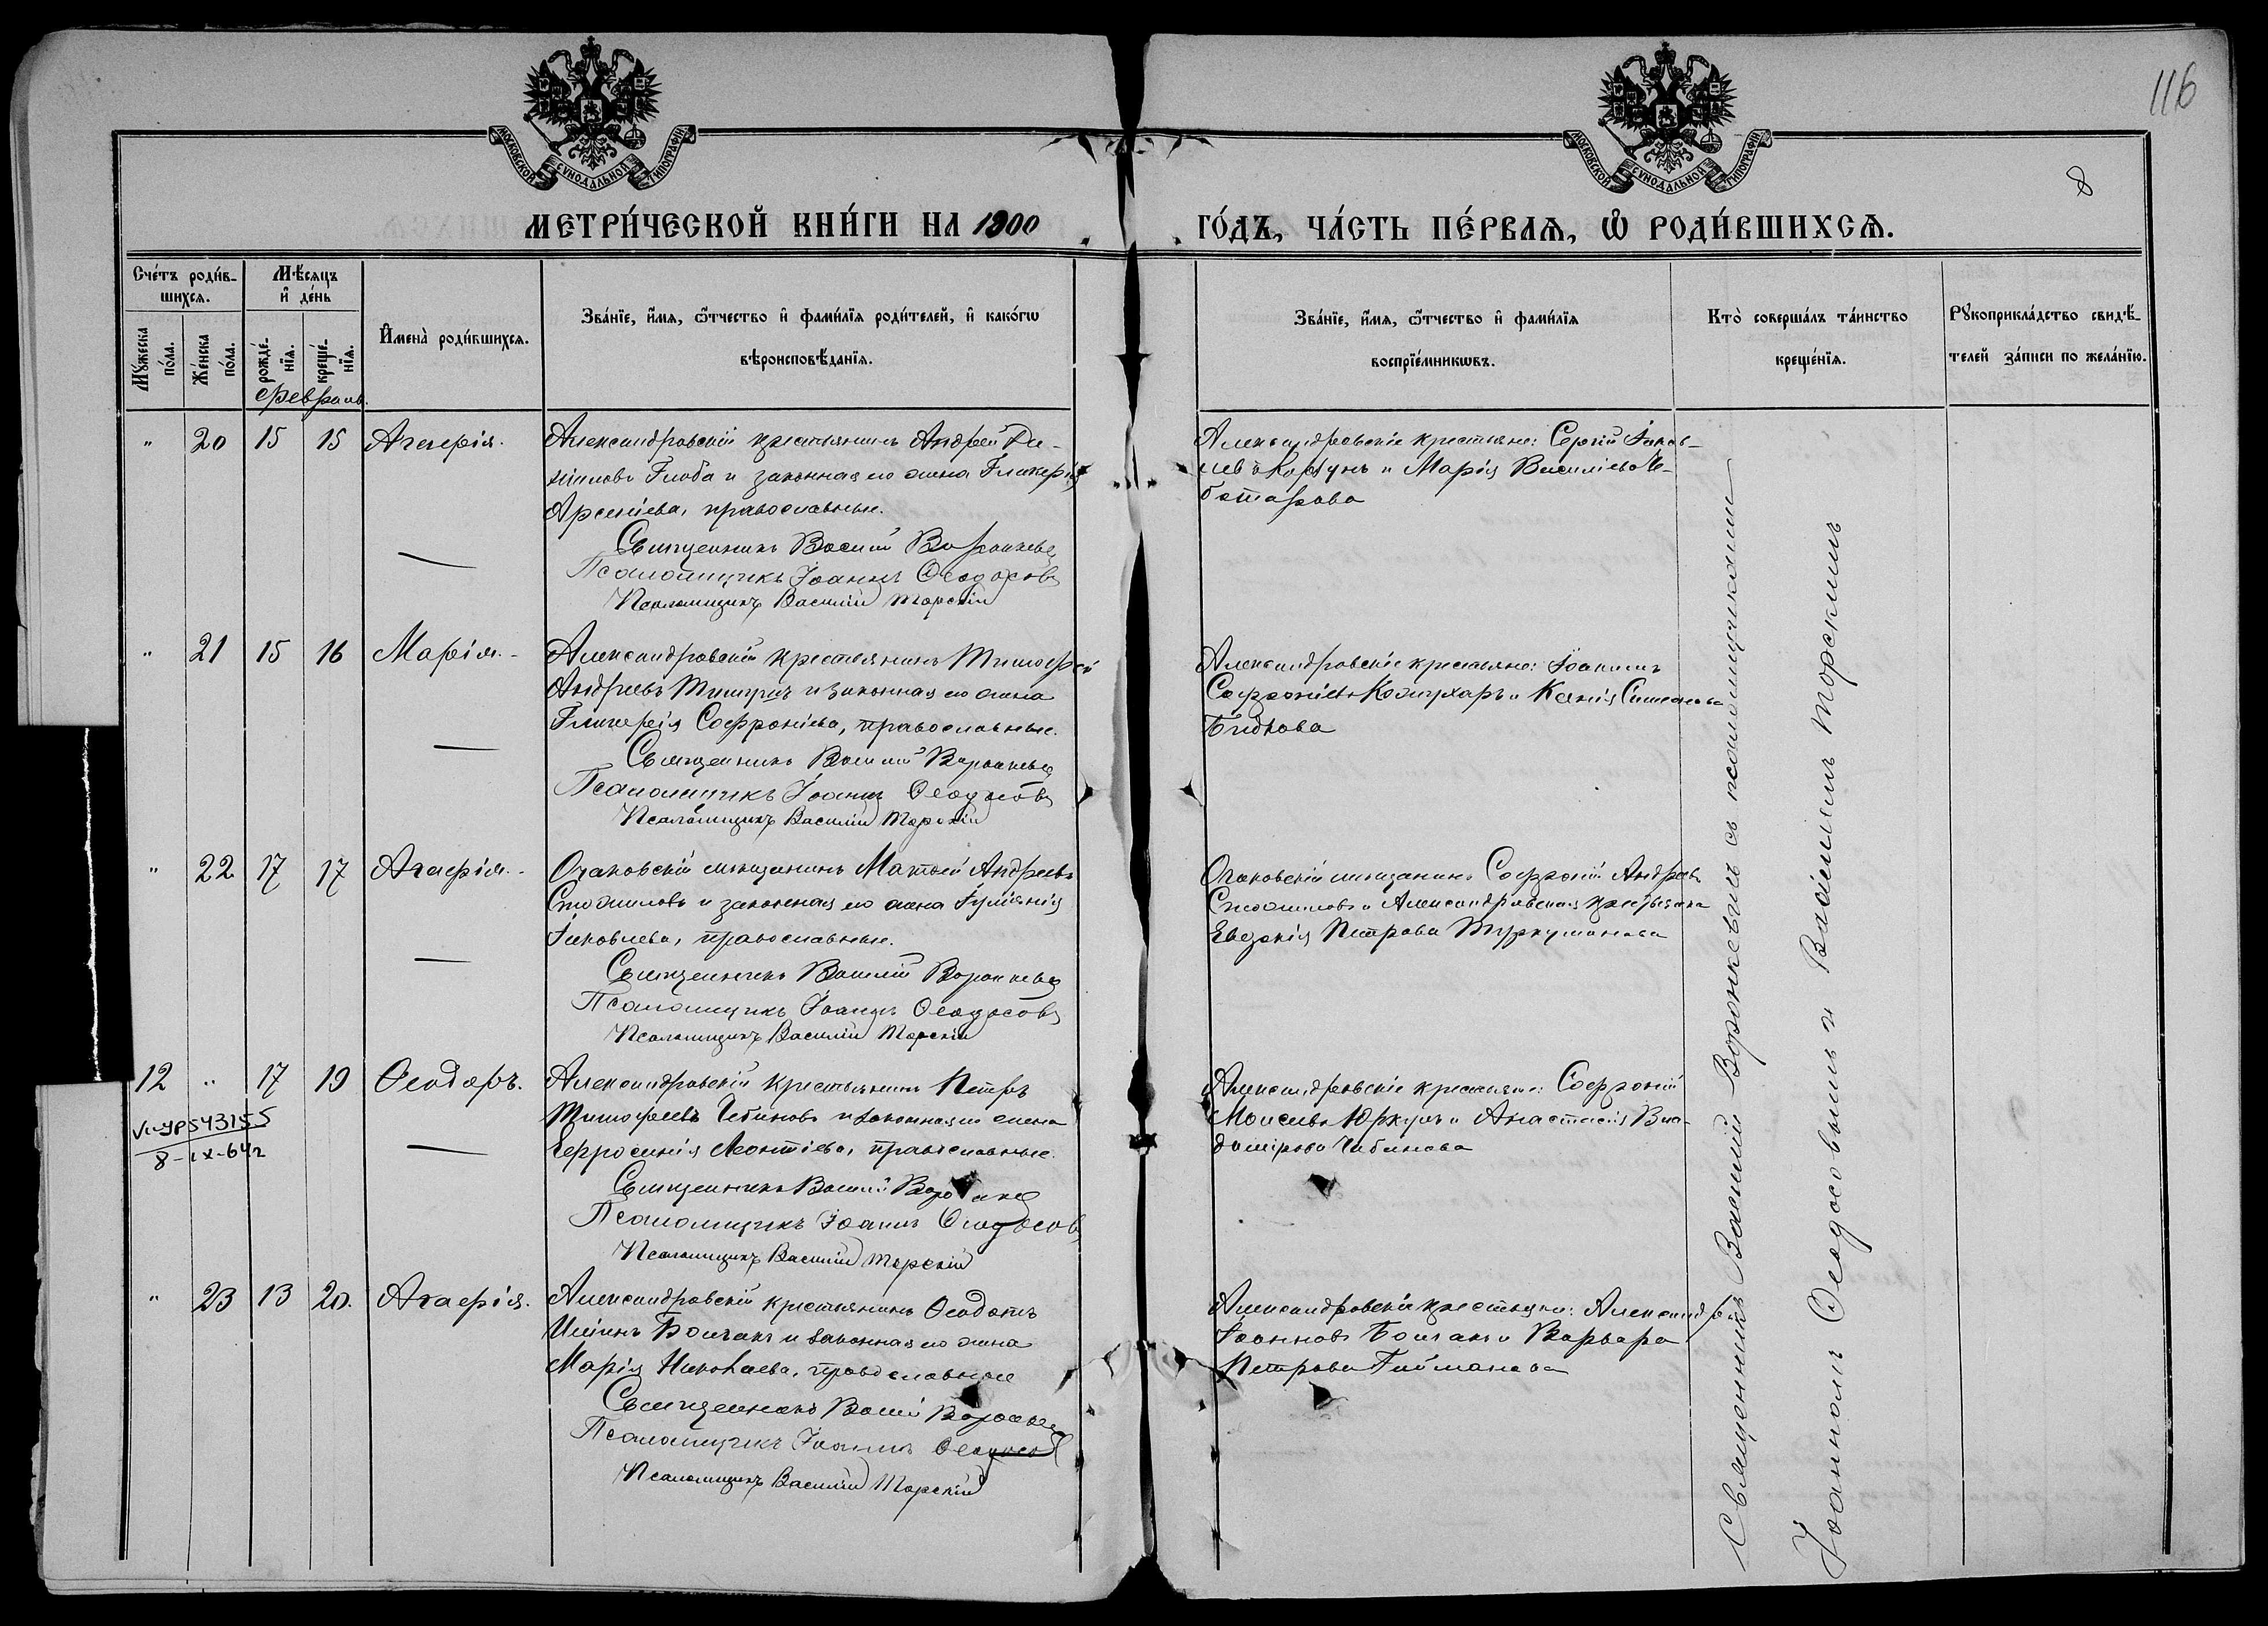 116
8
МОСКОВСКОЙ СѴНОДАЛЬНОЙ ТИПОГРАФІИ
МОСКОВСКОЙ СѴНОДАЛЬНОЙ ТИПОГРАФІИ
МЕТРИ́ЧЕСКОЙ КНИ́ГИ НА 1900
ГО́ДЪ, ЧА́СТЬ ПЕ́РВАѦ, Ѿ РОДИ́ВШИХСѦ.
Сче́тъ роди́в-
шихсѧ.
Мѣ́сѧцъ
и҆ де́нь
Мꙋ́жеска по́ла.
Же́нска по́ла.
рожде́-
нїѧ.
креще́-
нїѧ.
И҆мена̀ роди́вшихсѧ.
Зва́нїе, и҆́мѧ, ѻ҆́тчество и҆ фами́лїѧ роди́телей, и҆ како́гѡ
вѣроисповѣ́данїѧ.
Зва́нїе, и҆́мѧ, ѻ҆́тчество и҆ фами́лїѧ
воспрїе́мникѡвъ.
Кто̀ соверша́лъ та́инство
креще́нїѧ.
Рꙋкоприкла́дство свидѣ́-
телей за́писи по жела́нїю.
Февраль.
" 20 15 15 Агаѳія.
Александровскій крестьянинъ Андрей Да-
ниловъ Глоба и законная его жена Гликерія
Арсеніева, православные.
Священникъ Василій Воронкевъ
Псаломщикъ Іоаннъ Ѳеодосовъ
Псаломщикъ Василій Торскій
Александровскіе крестьяне: Сергій Іаков-
левъ Коржунъ и Марія Василіева Че-
ботарова
" 21 15 16 Марія.
Александровскій крестьянинъ Тимоѳей
Андреевъ и законная его жена
Гликерія Софроніева, православные.
Священникъ Василій Воронкевъ
Псаломщикъ Іоаннъ Ѳеодосовъ
Псаломщикъ Василій Торскій
Александровскіе крестьяне: Іоакимъ
Софроніевъ Кожухаръ и Ксенія Симеонова
Бидкова
" 22 17 17 Агаѳія.
Очаковскій мѣщанинъ Матѳей Андреевъ
Стоиловъ и законная его жена Іуліанія
Іаковлева, православные.
Священникъ Василій Воронкевъ
Псаломщикъ Іоаннъ Ѳеодосовъ
Псаломщикъ Василій Торскій
Очаковскій мѣщанинъ Софроній Андреевъ
Стоиловъ и Александровская крестьянка
Евдокія Петрова Туркуманова
12 " 17 19 Ѳеодоръ.
8-IX-64 г
Александровскій крестьянинъ Петръ
Тимоѳеевъ Чебановъ и законная его жена
Евфросинія Леонтіева, православные.
Священникъ Василій
Псаломщикъ Іоаннъ Ѳеодосовъ
Псаломщикъ Василій Торскій
Александровскіе крестьяне: Софроній
Моисеевъ и Анастасія Вла-
димірова Чебанова
" 23 13 20. Агаѳія.
Александровскій крестьянинъ Ѳеодотъ
Ильинъ Болганъ и законная его жена
Марія Николаева, православные
Священникъ Василій Воронкевъ
Псаломщикъ Іоаннъ Ѳеодосовъ
Псаломщикъ Василій Торскій
Александровскіе крестьяне: Александръ
Іоанновъ Болганъ и Варвара
Петрова Гайманова
Священникъ Василій Воронкевымъ съ псаломщиками
Іоанномъ Ѳеодосовымъ и Василіемъ Торскимъ